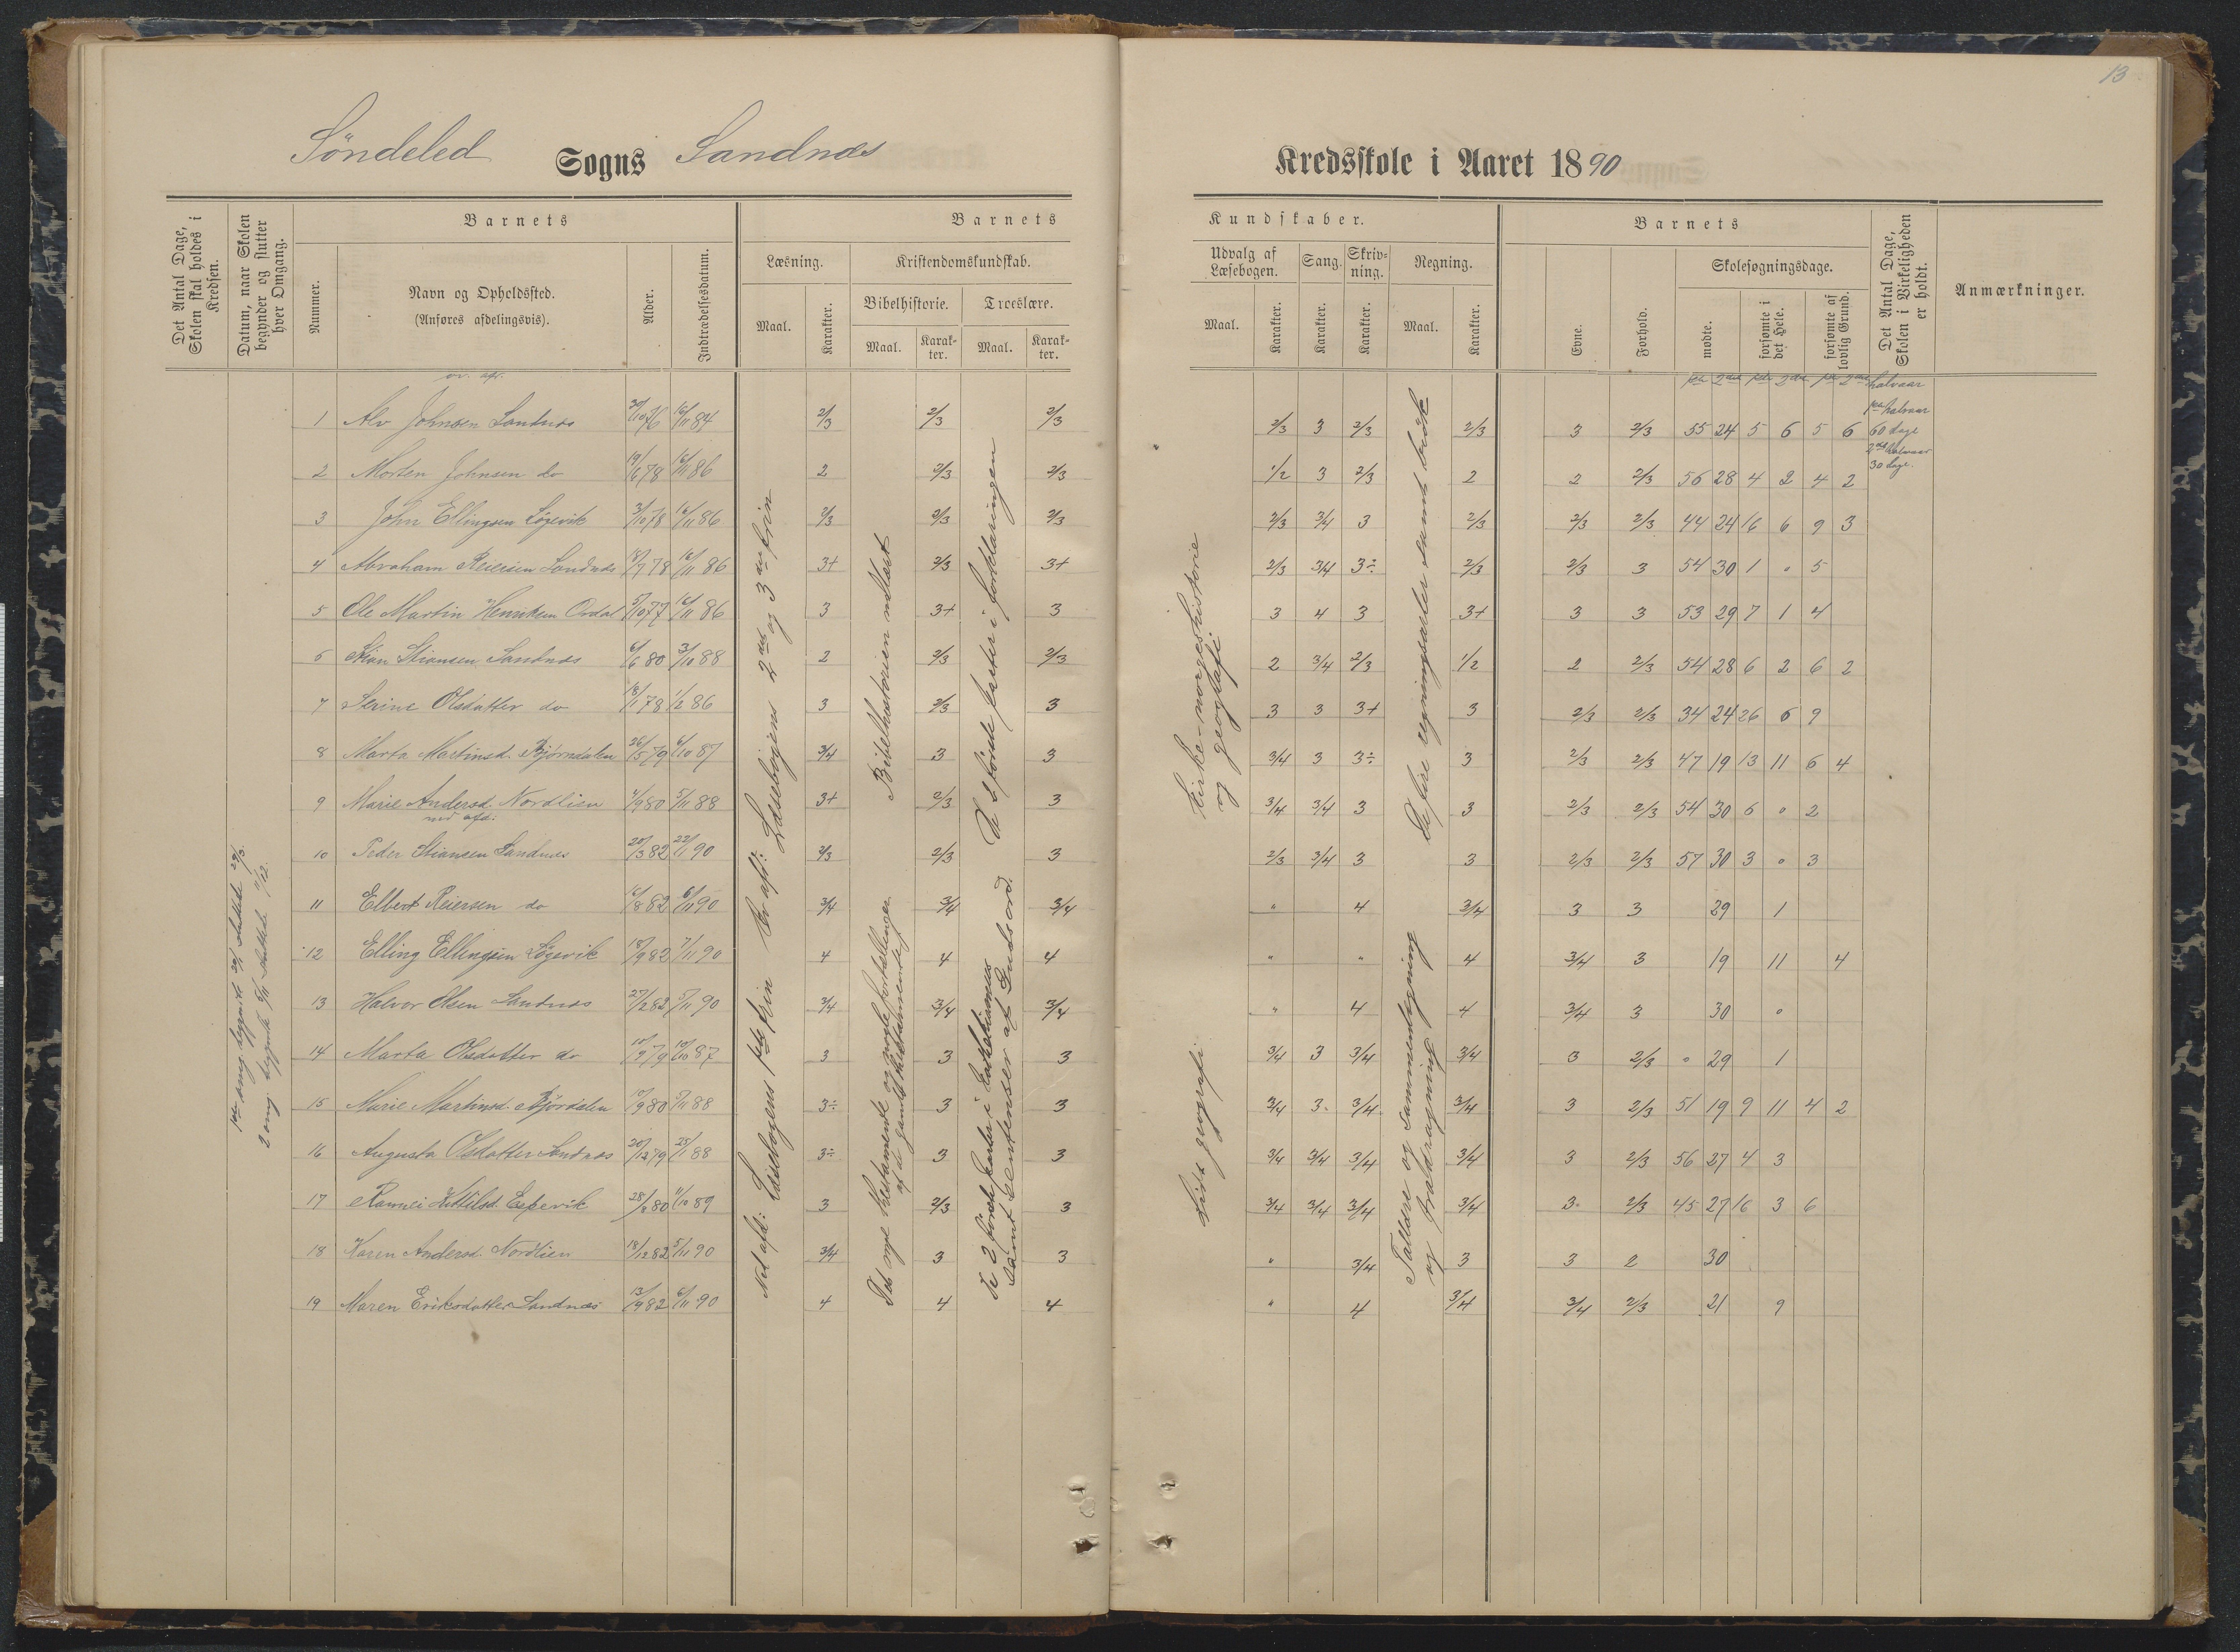 13
Söndeled Sogns Sandnæs Kredsskole i Aaret 1890
Det Antal Dage, Skolen skal holdes i Kredsen.
Datum, naar Skolen begynder og slutter hver Omgang.
Barnets
Nummer.
Navn og Opholdssted.
(Anføres afdelingsvis).
Alder.
Indtrædelsesdatum.
Barnets
Læsning.
Maal.
Karakter.
Kristendomskundskab.
Bibelhistorie.
Maal.
Karakter.
Troeslære.
Maal.
Karakter.
Kundskaber.
Udvalg af Læsebogen.
Maal.
Karakter.
Sang.
Karakter.
Skrivning.
Karakter.
Regning.
Maal.
Karakter.
Barnets
Evne.
Forhold.
Skolesøgningsdage.
mødte.
forsømte i det Hele.
forsømte af lovlig Grund.
Det Antal Dage, Skolen i Virkeligheden er holdt.
Anmærkninger.
1ste 2det 1ste 2det 1ste 2det halvaar
1ste halvaar
60 dage
2det halvaar
30 dage.
öv. afd.
1 Alv Johnsen Sandnæs 30/10 76 16/11 84 2/3 2/3 2/3 2/3 3 2/3 2/3 3 2/3 55 24 5 6 5 6
2 Morten Johnsen do 19/6 78 16/11 86 2 2/3 2/3 1/2 3 2/3 2 2 2/3 56 28 4 2 4 2
3 John Ellingsen Lögevik 3/10 78 16/11 86 2/3 2/3 2/3 2/3 3/4 3 2/3 2/3 2/3 44 24 16 6 9 3
4 Abraham Reiersen Sandnæs 18/7 78 16/11 86 3+ 2/3 3+ 2/3 3/4 3÷ 2/3 2/3 3 54 30 1 " 5
5 Ole Martin Henriksen Ovdal 5/10 77 16/11 86 3 3+ 3 3 4 3 3+ 3 3 53 29 7 1 4
6 Stian Stiansen Sandnæs 6/6 80 3/10 88 2 2/3 2/3 2 3/4 2/3 1/2 2 2/3 54 28 6 2 6 2
7 Serine Olsdatter do 18/1 78 1/2 86 3 2/3 3 3 3 3+ 3 2/3 2/3 34 24 26 6 9
8 Marta Martinsd. Bjørndalen 26/5 79 6/10 87 3/4 3 3 3/4 3 3÷ 3 2/3 2/3 47 19 13 11 6 4
9 Marie Andersd. Nordlien 4/9 80 5/11 88 3+ 2/3 3 3/4 3/4 3 3 2/3 2/3 54 30 6 " 2
ned. afd:
10 Peder Stiansen Sandnæs 20/3 82 22/1 90 2/3 2/3 3 2/3 3/4 3 3 2/3 2/3 57 30 3 " 3
11 Elbert Reiersen do 16/8 82 6/11 90 3/4 3/4 3/4 " 4 3/4 3 3 29 1
12 Elling Ellingsen Lögevik 18/9 82 7/11 90 4 4 4 " " 4 3/4 3 19 11 4
13 Halvor Olsen Sandnæs 27/2 82 5/11 90 3/4 3/4 3/4 " 4 4 3/4 3 30 "
14 Marta Olsdatter do 10/2 79 10/10 87 3 3 3 3/4 3 3/4 3/4 3 2/3 " 29 1
15 Marie Martinsd. Björdalen 10/9 80 5/11 88 3÷ 3 3 3/4 3 3/4 3/4 3 2/3 51 19 9 11 4 2
16 Augusta Olsdatter Sandnæs 20/12 79 25/1 88 3÷ 3 3 3/4 3/4 3/4 3/4 3 2/3 56 27 4 3
17 Ramnei Kittilsd. Espevik 28/2 80 11/10 89 3 2/3 3 3/4 3/4 3/4 3/4 3 2/3 45 27 16 3 6
18 Karen Andersd. Nordlien 18/12 82 5/11 90 3/4 3 3 " 3/4 3 3 2 30
19 Maren Eriksdatter Sandnæs 13/9 82 6/11 90 4 4 4 " 4 3/4 3/4 2/3 21 9
1ste omg. begynte 20/1 sluttede 29/3.
2 omg. begynte 5/11 sluttede 11/12.
Öv afd: Læsebogens 2det og 3die trin
Ned afd: Læsebogens 1ste trin
Bibelhistorien utlært
Det nye testamente og nogle fortællinger af det gamle testamente
De 2 förste parter i forklaringen
De 2 förste parter i katekismus samt sentenser af Guds ord.
Kirke- norgeshistorie og geografi
Lidt geografi
De fire regningsarter samt brök
Tallære og sammenlægning og fradragning